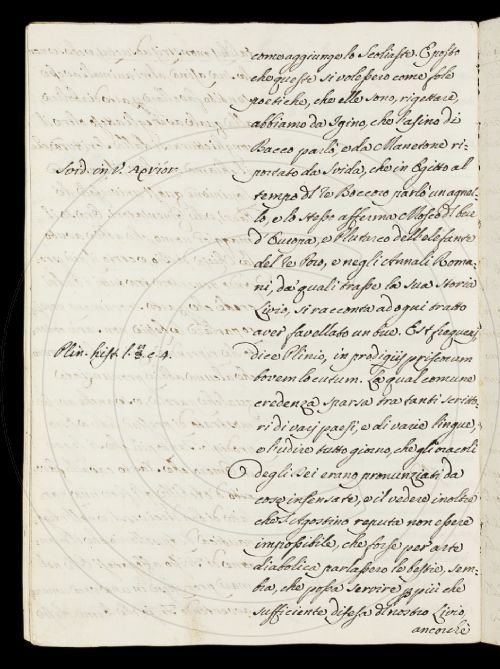 come aggiunge lo Scoliaste. E posto
che queste si volessero come fole
poetiche, che elle sono, rigettare,
abbiamo da Igino, che l'asino di
Bacco parlò, e da Manetone ri-
portato da Svida, che in Egitto al
Svid. in V. Αρνίον
tempo del Re Boccoro parlò un agnel-
lo, e lo stesso afferma Mosco del bue
d'Europa, e Plutarco dell'elefante
del Re Poro, e negli Annali Roma-
ni, da' quali trasse la sua Storia
Livio, si racconta ad ogni tratto
aver favellato un bue. Est frequens,
Plin. hist. l. 8. c. 4.
dice Plinio, in prodigijs priscorum
bovem locutum. La qual comune
credenza sparsa tra tanti scritto-
ri di varj paesi, e di varie lingue,
e l'udire tutto giorno, che gli oracoli
degli Dei erano pronunziati da
cose insensate, e il vedere inoltre
che S. Agostino reputa non essere
impossibile, che forse per arte
diabolica parlassero le bestie, sem-
bra, che possa servire p più che
sufficiente difesa di nostro Livio,
ancorchè